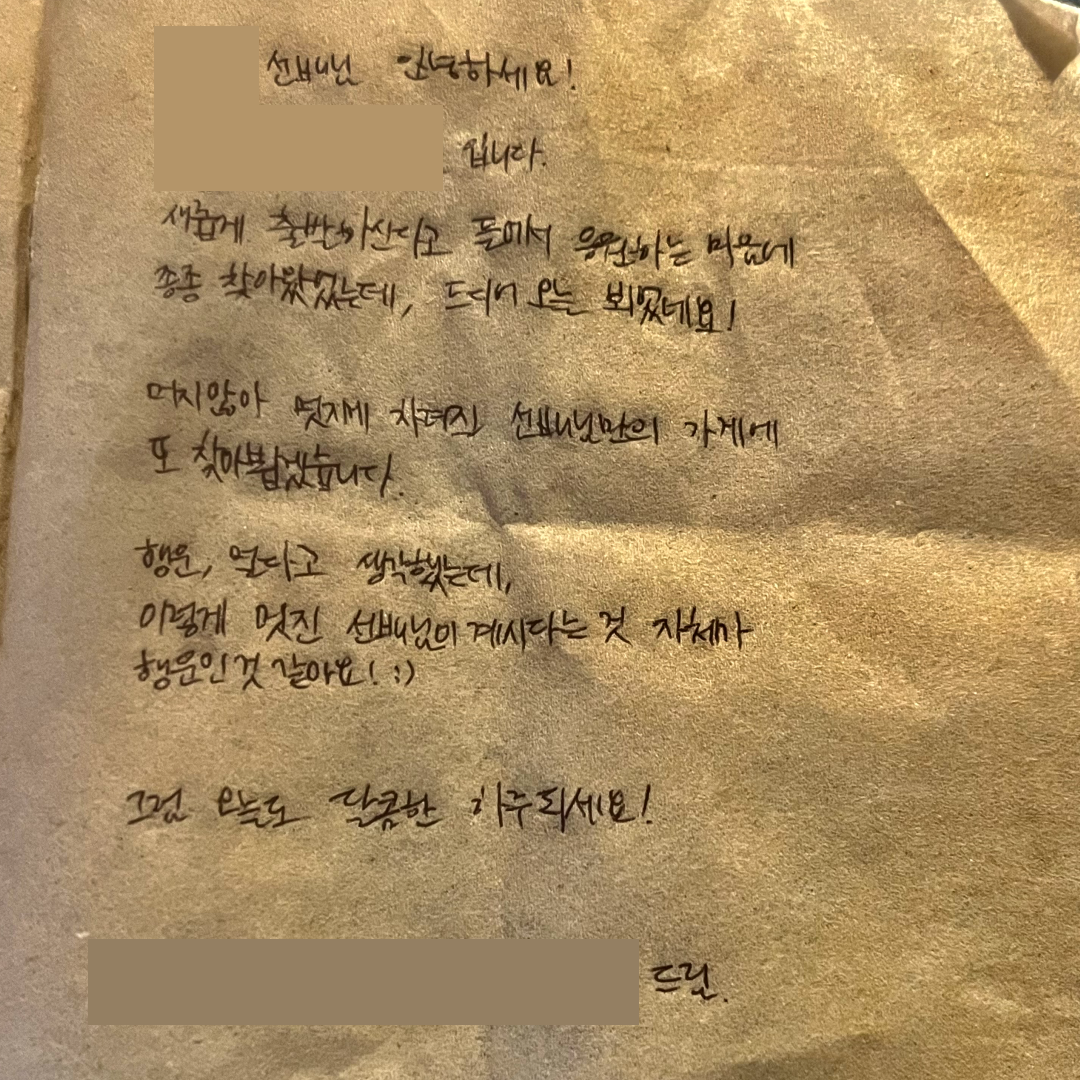 선배님 안녕하세요!
입니다.
새롭게 출발하신다고 들어서 응원하는 마음에
종종 찾아왔었는데, 드디어 오늘 뵈었네요!
머지않아 멋지게 차려진 선배님만의 가게에
또 찾아뵙겠습니다.
행운, 멀다고 생각했는데,
이렇게 멋진 선배님이 계시다는 것 자체가
행운인 것 같아요! :)
그럼 오늘도 달콤한 하루되세요!
드림.